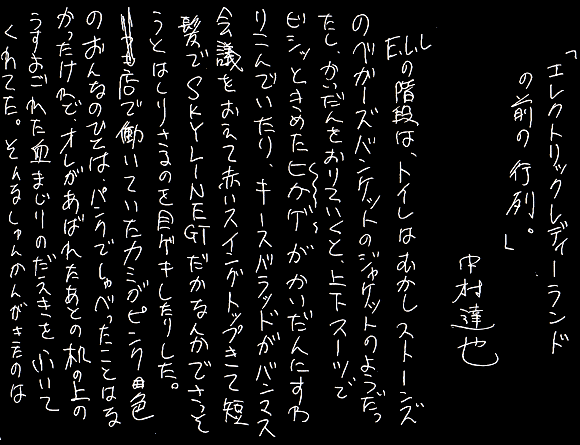 「エレクトリックレディーランド
の前の行列。」
中村達也
E.L.Lの階段は、トイレはむかしストーンズ
のベガーズバンケットのジャケットのようだっ
たし、かいだんをおりていくと、上下スーツで
ビシッときめたヒカゲがかいだんにすわ
りこんでいたり、キースバラッドがバンマス
会議をおえて赤いスイングトップきて短
髪でSKYLINE GTだかなんかでさっそ
うとはしりさるのを目ゲキしたりした。
店で働いていたカミがピンク色
のおんなのひとはパンクでしゃべったことはな
かったけれど、オレがあばれたあとの机の上の
うすよごれた血まじりのだえきを ふいて
くれてた。そんなしゅんかんがきたのは